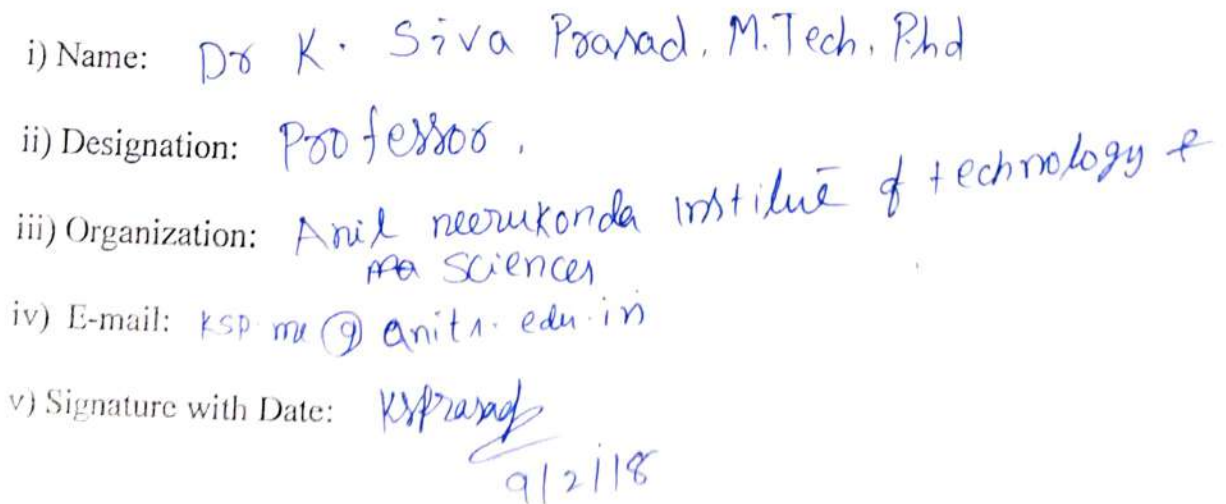 i) Name: Dr K. Siva Prasad, M.Tech, P.hd
ii) Designation: Professor.
iii) Organization: Anil neerukonda institute of technology &
sciences
iv) E-mail: ksp.me@anits.edu.in
v) Signature with Date: KSPrasad
9/2/18